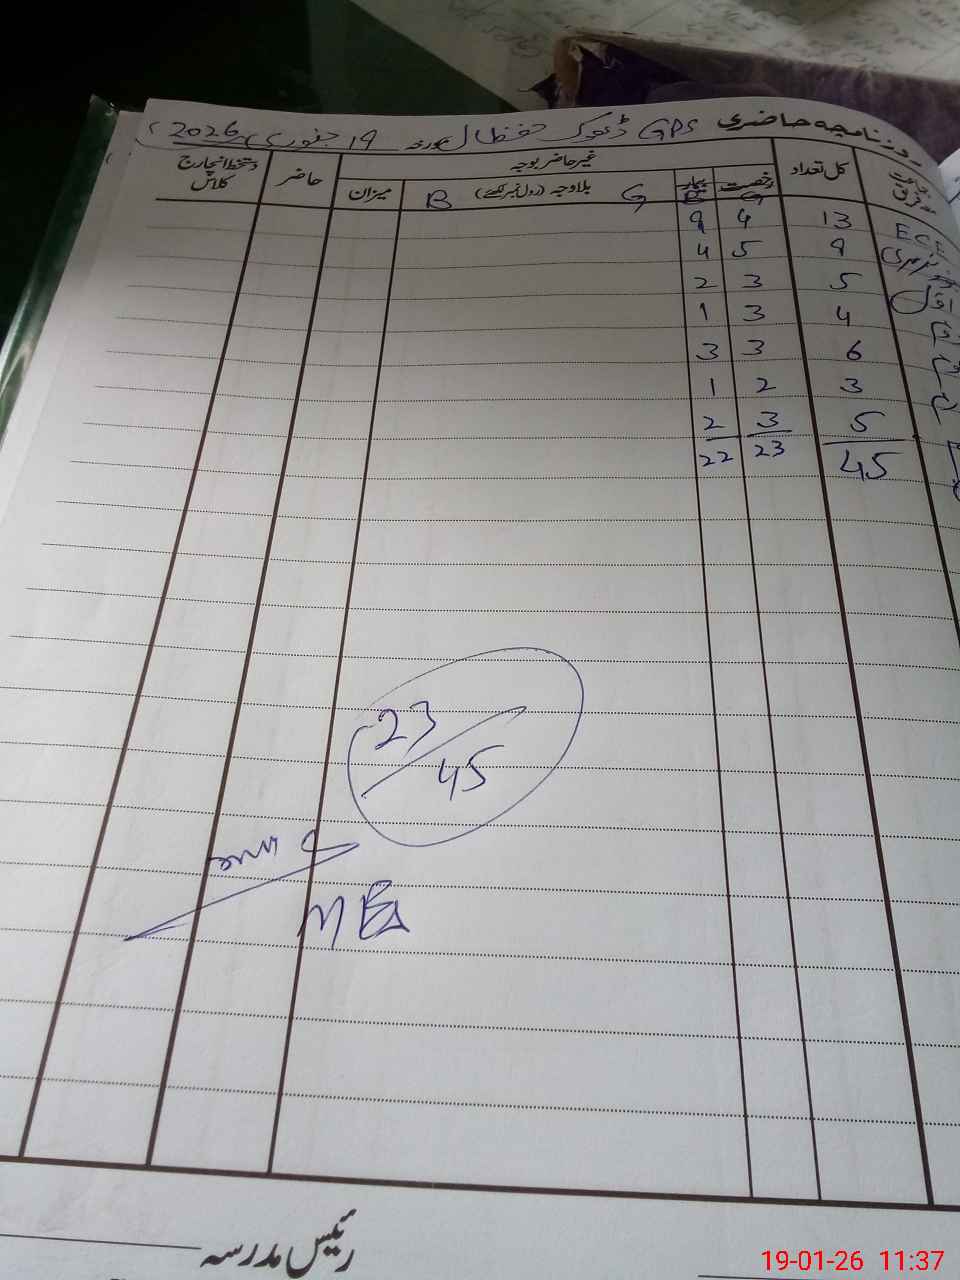 روزنامچہ حاضری GPS ڈھوک حفظال مورخہ 19 جنوری 2026
کل تعداد غیر حاضر بوجہ حاضر دستخط انچارج کلاس
رخصت بیمار بلاوجہ (رول نمبر لکھئے) میزان
G B G B
ECE 13 4 9
9 5 4
اول 5 3 2
4 3 1
6 3 3
3 2 1
5 3 2
45 23 22
23/45
رئیس مدرسہ
19-01-26 11:37